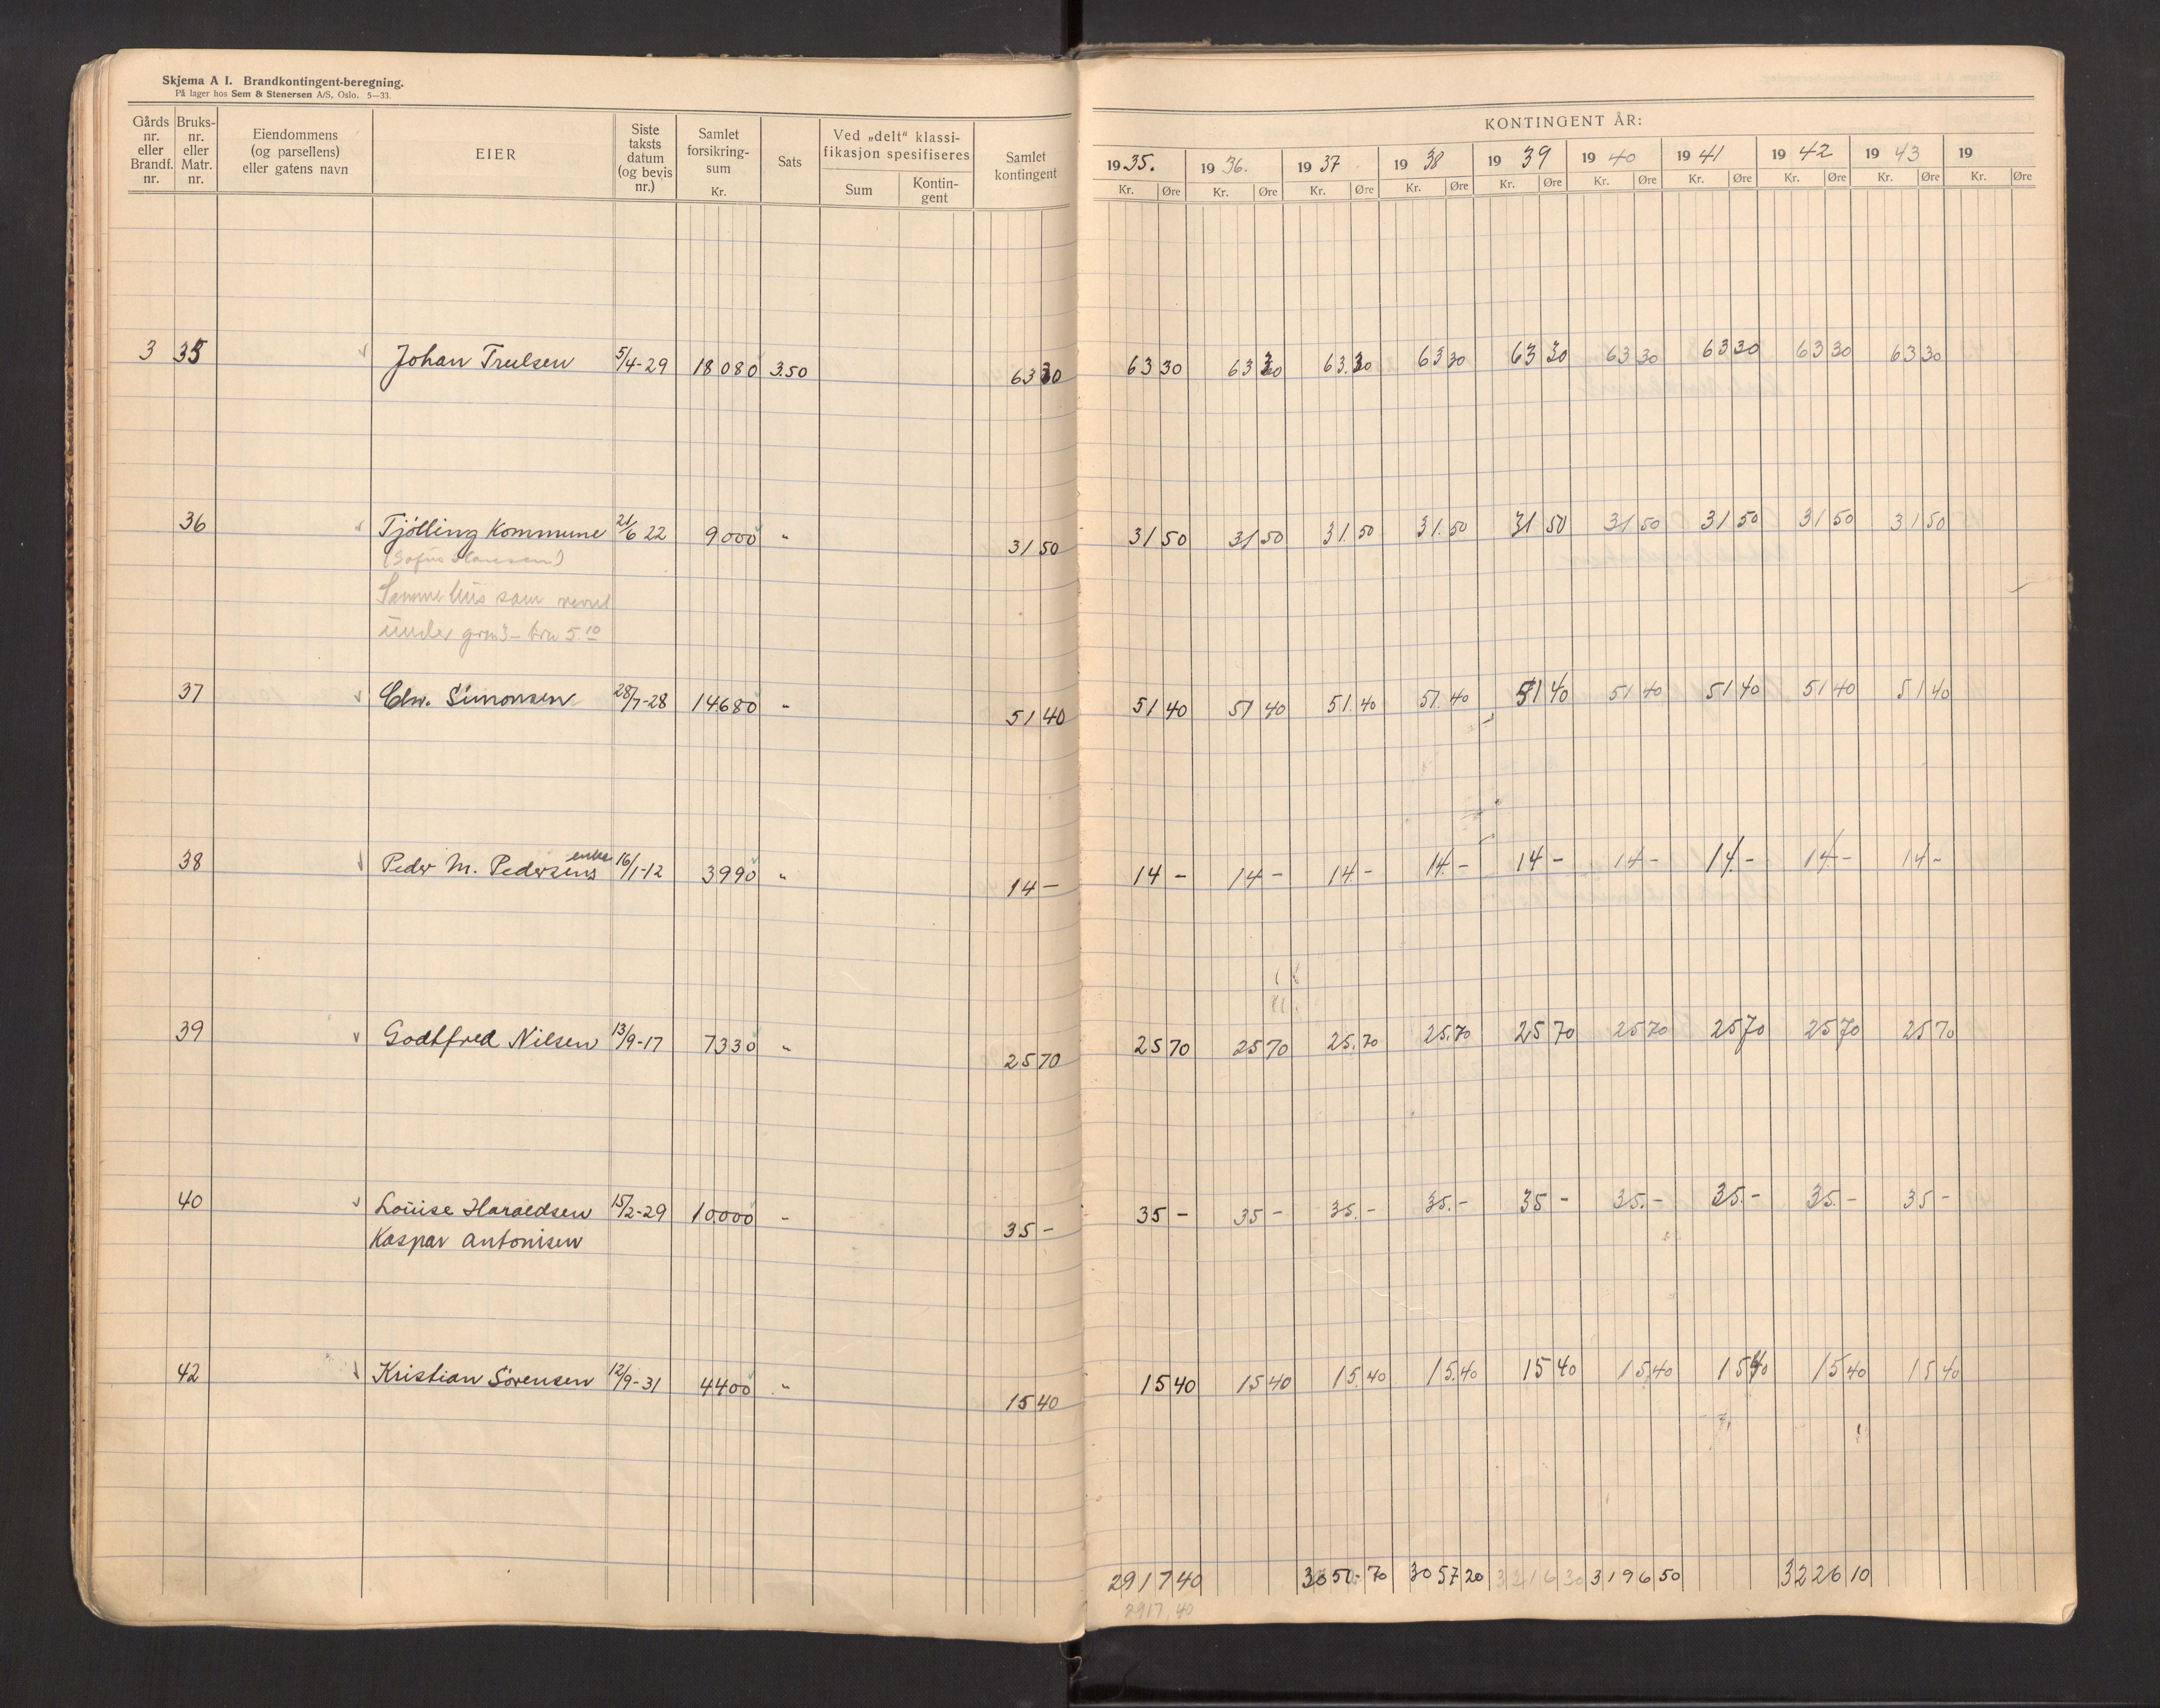 Skjema A I. Brandkontingent-beregning.
På lager hos Sem & Stenersen A/S, Oslo. 5—33.
Gårds nr. eller Brandf. nr.
Bruks- nr. eller Matr. nr.
Eiendommens (og parsellens) eller gatens navn
EIER
Siste taksts datum (og bevis nr.)
Samlet forsikring- sum Kr.
Sats
Ved „delt“ klassi- fikasjon spesifiseres
Sum
Kontin- gent
Samlet kontingent
KONTINGENT ÅR:
1935. 1936. 1937 1938 1939 1940 1941 1942 1943 19
Kr. Øre Kr. Øre Kr. Øre Kr. Øre Kr. Øre Kr. Øre Kr. Øre Kr. Øre Kr. Øre Kr. Øre
3 35 Johan Trulsen 5/4-29 18 080 3.50 63 30 63 30 63 30 63.30 63 30 63 30 63 30 63 30 63 30 63 30
36 Tjölling Kommune 21/6 22 9.000 " 31 50 31 50 31 50 31.50 31.50 31 50 31 50 31 50 31 50 31 50
(Sofus Hansen)
Samme hus som
under grn 3 - brn 5.10
37 Chr. Simonsen 28/7-28 14680 " 51 40 51 40 51 40 51.40 51.40 51 40 51 40 51 40 51 40 51 40
38 Peder M. Pedersens enke 16/1-12 3990 " 14 - 14 - 14 - 14.- 14.- 14 - 14 - 14.- 14.- 14 -
39 Godtfred Nilsen 13/9-17 7330 " 25 70 25 70 25 70 25.70 25.70 25 70 25 70 25 70 25 70 25 70
40 Louise Haraldsen 15/2-29 10.000 " 35 - 35 - 35 - 35.- 35.- 35 - 35.- 35.- 35.- 35 -
Kaspar Antonisen
42 Kristian Sörensen 12/9-31 4400 " 15 40 15 40 15 40 15.40 15.40 15 40 15.40 15 40 15 40 15 40
2917 40 70 3057 20 3196 50 3226 10
2917,40